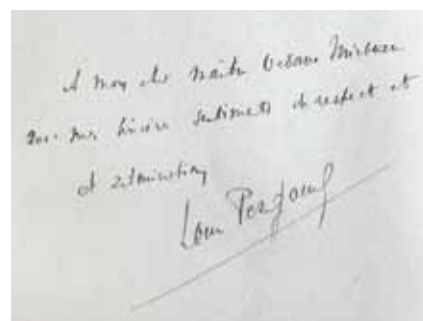 A mon cher maître Octave Mirbeau
avec mes sincères sentiments de respect et
d'admiration
Louis Pergaud